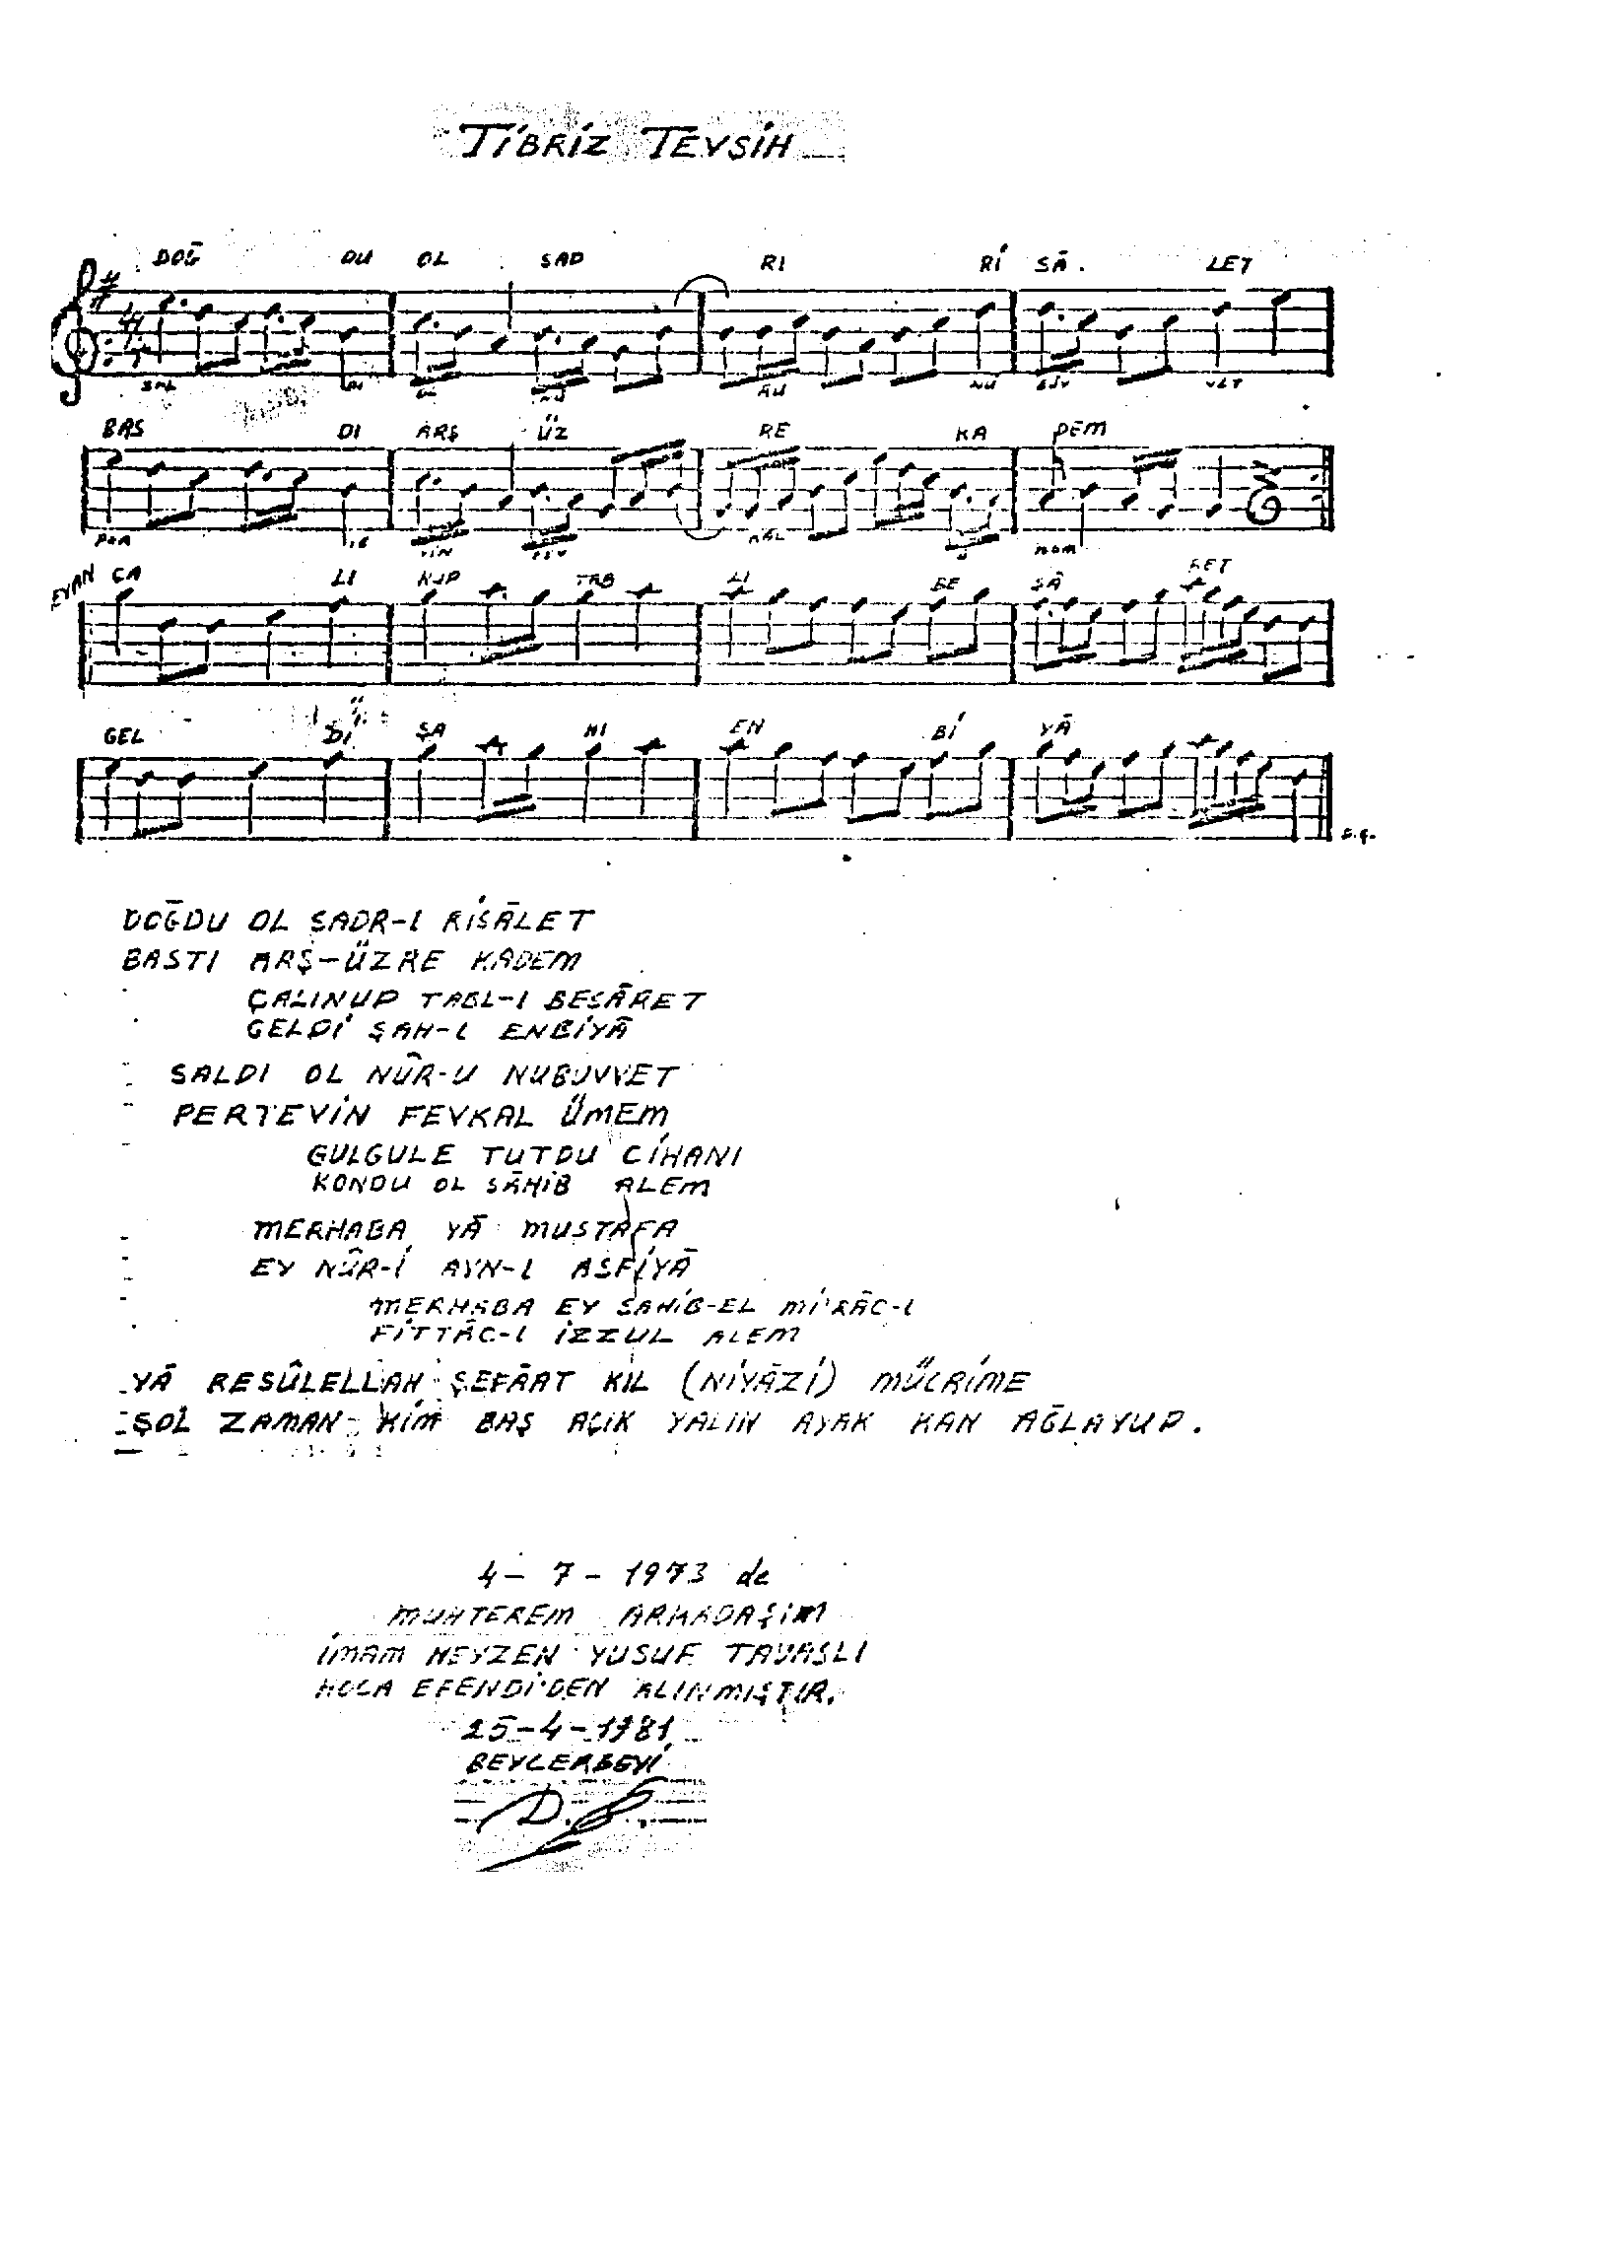 TİBRİZ TEVŞİH
DOĞ DU OL SAD RI Rİ SÂ LET
SAL
BAS DI ARŞ ÜZ RE KA DEM
ÇA LI NUP TAB LI BE ŞÂ RET
GEL Dİ ŞA HI EN Bİ YÂ
S.Ç.
DOĞDU OL SADR-I RİSÂLET
BASTI ARŞ-ÜZRE KADEM
ÇALINUP TABL-I BEŞÂRET
GELDİ ŞAH-I ENBİYÂ
SALDI OL NÛR-U NUBUVVET
PERTEVİN FEVKAL ÜMEM
GULGULE TUTDU CİHANI
KONDU OL SÂHİB ALEM
MERHABA YÂ MUSTAFA
EY NÛR-İ AYN-I ASFİYÂ
MERHABA EY SAHİB-EL Mİ'RÂC-I
FİTTÂC-I İZZUL ALEM
YÂ RESÛLELLAH ŞEFÂAT KIL (NİYÂZİ) MÜCRİME
ŞOL ZAMAN KİM BAŞ AÇIK YALIN AYAK KAN AĞLAYUP.
4- 7- 1973 de
MUHTEREM ARKADAŞIM
İMAM NEYZEN YUSUF TAVASLI
HOCA EFENDİ'DEN ALINMIŞTIR.
25-4-1981
BEYLERBEYİ